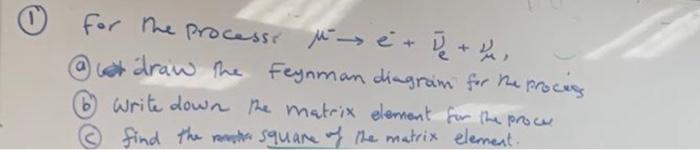 ① for the process: μ⁻ → e⁻ + ν̄ₑ + ν_μ,
ⓐ draw the Feynman diagram for the process
ⓑ write down the matrix element for the proce
ⓒ find the square of the matrix element.